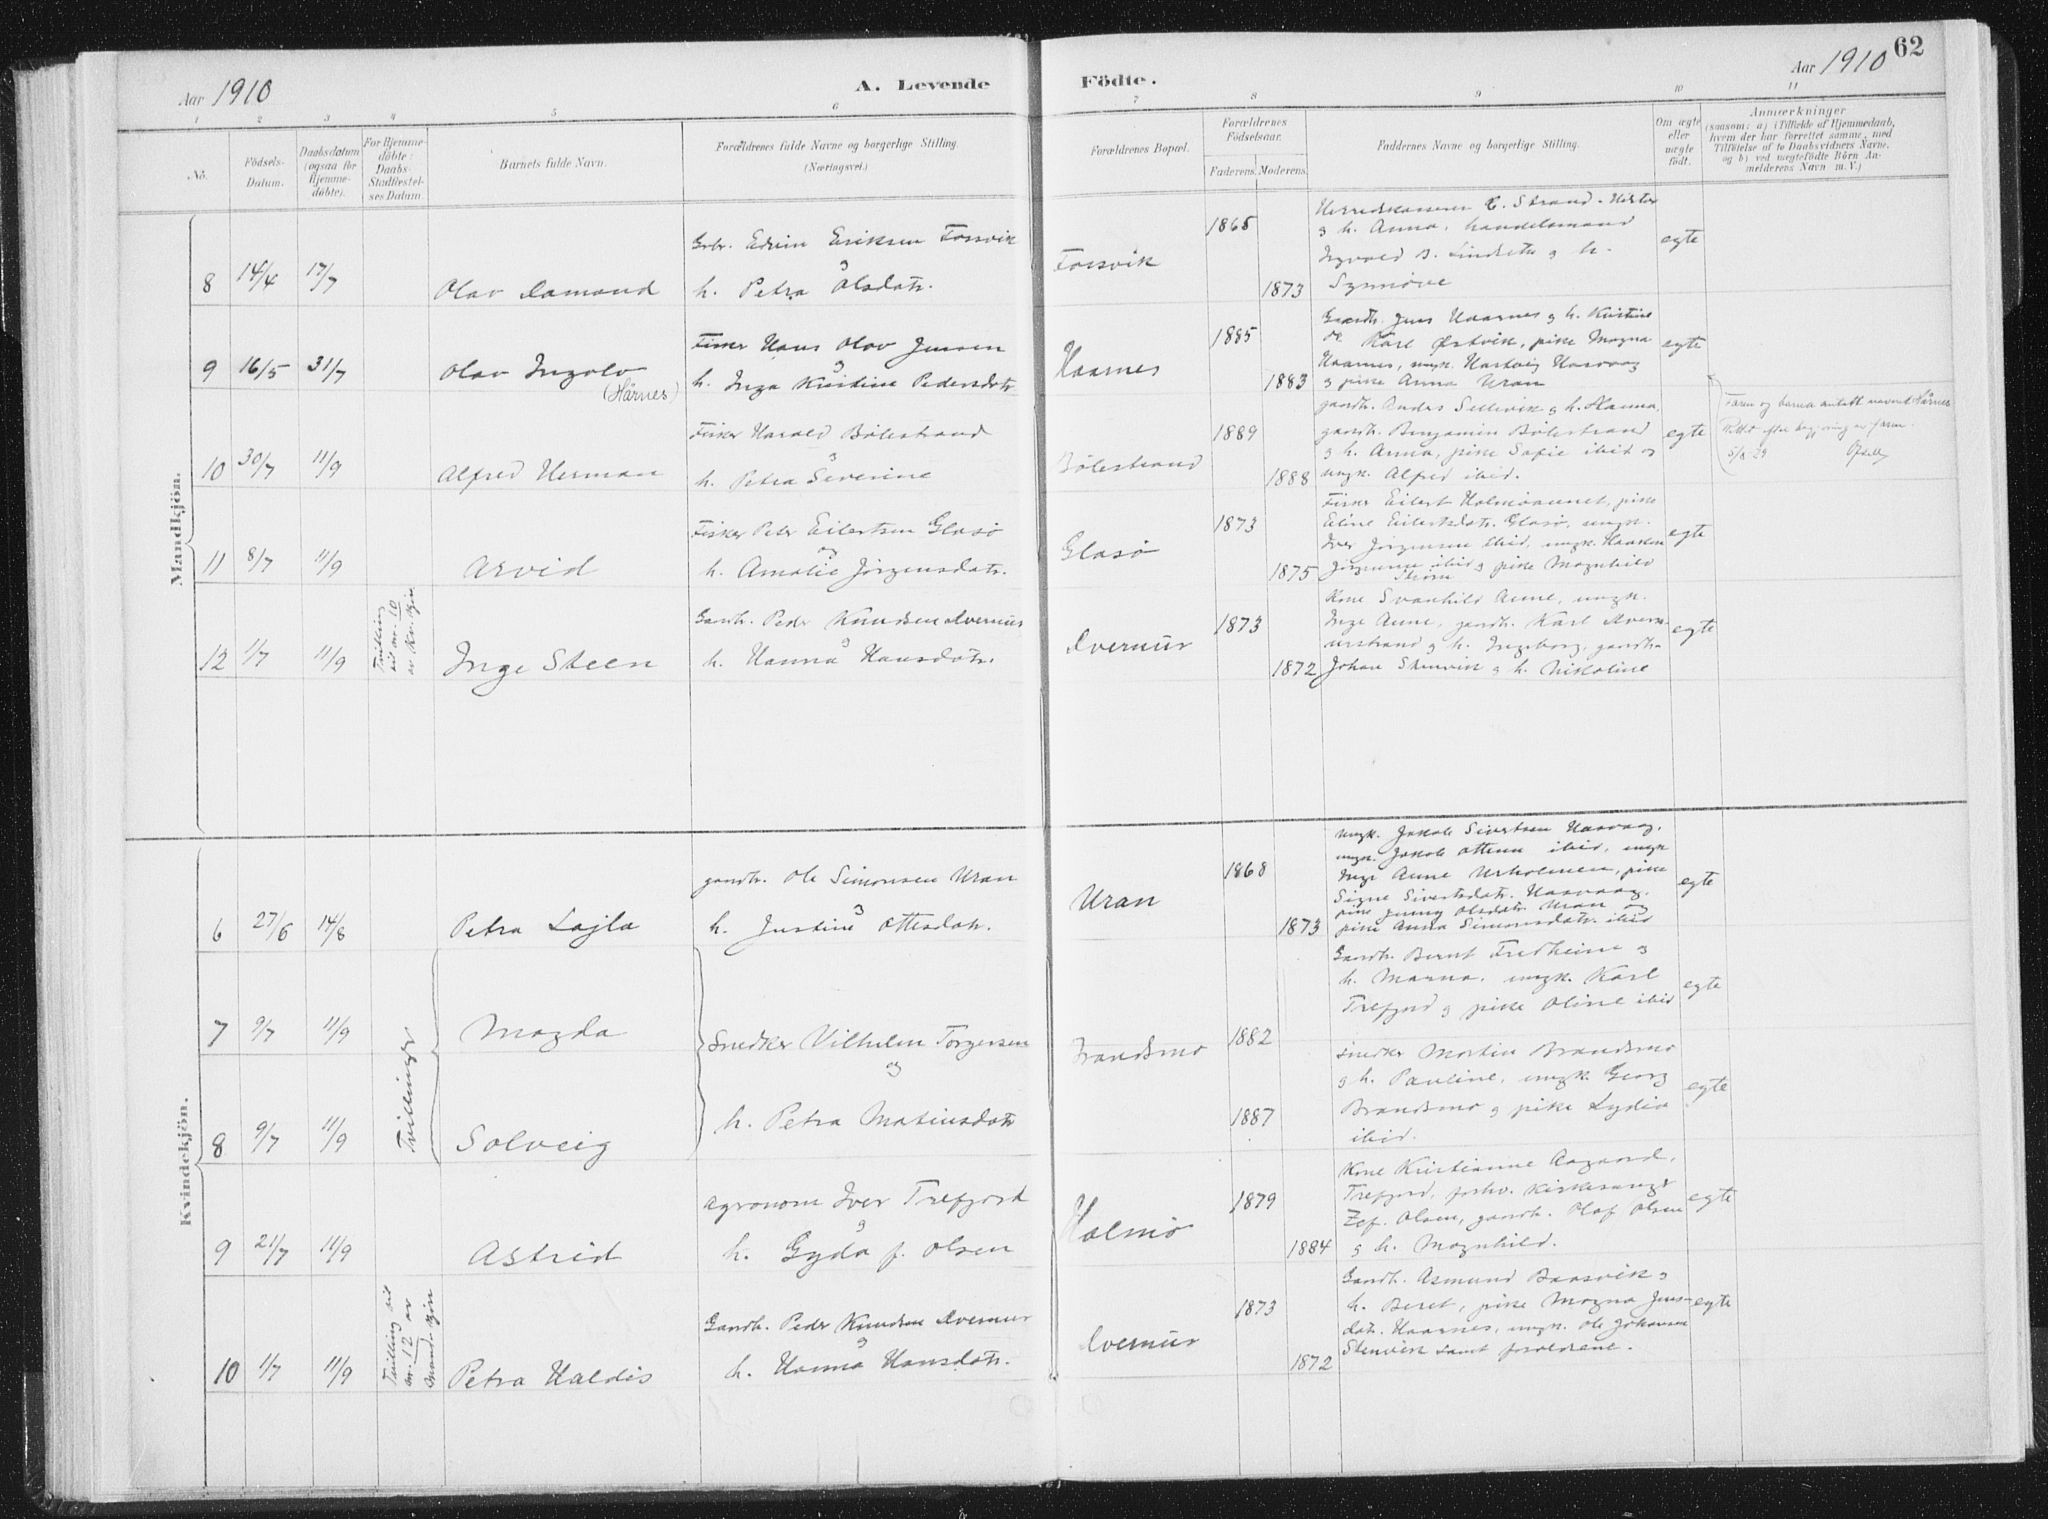 Aar 1910
A. Levende
Födte.
Aar 1910
62
1 2 3 4 5 6 7 8 9 10 11
No.
Födsels-
Datum.
Daabsdatum
(ogsaa for
Hjemme-
döbte).
For Hjemme-
döbte:
Daabs-
Stadfestel-
ses Datum.
Barnets fulde Navn.
Forældrenes fulde Navne og borgerlige Stilling
(Næringsvei.)
Forældrenes Bopæl.
Forældrenes
Födselsaar.
Faderens. Moderens.
Faddernes Navne og borgerlige Stilling.
Om ægte
eller
uægte
födt.
Anmærkninger
(saasom: a) i Tilfælde af Hjemmedaab,
hvem der har forrettet samme, med
Tilföielse af to Daabsvidners Navne,
og b) ved uægtefödte Börn An-
melderens Navn m. V.)
Mandkjön.
8 14/4 17/7
Olav Edmund
Gbr. Edvin Eriksen Forsvik
og
h. Petra Olsdatr.
Forsvik
1865
1873
& h. Anna, handelsmand
Ingvald B. Lindseth & h.
Synnöve
egte
9 16/5 31/7
Olav Ingolv
(Hårnes)
Fisker Hans Olav Jensen
og
h. Inga Kristine Pedersdatr
Haarnes
1885
1883
Gaardb. Jens Haarnes & h. Kristine
Karl Østvik, pike Magna
Haarnes, ungk. Hartvig Hasvaag
& pike Anna Uran
egte
Faren og barna antatt navnet Hårnes
5/8-29
10 30/7 11/9
Alfred Herman
Fisker Harald Bølestrand
og
h. Petra Severine
Bølestrand
1889
1888
gaardb. Anders Sellevik & h. Hanna,
gaardb. Benjamin Bölestrand
& h. Anna, pike Sofie ibid og
ungk. Alfred ibid.
egte
11 8/7 11/9
Arvid
Fisker Peter Eilertsen Glasø
og
h. Amalie Jörgensdatr.
Glasø
1873
1875
Fisker Eilert Holmöaunet, pike
Eline Eilertsdatr. Glasö, ungk.
Iver Jörgensen ibid, ungk. Haakon
Jörgensen ibid & pike Magnhild
egte
12 1/7 11/9
Tvilling
til nr. 10
av Kv. kjön
Inge Steen
Gaardb. Peder Knudsen Dvernur
og
h. Hanna Hansdatr.
Dvernur
1873
1872
Kone Svanhild Aune, ungk.
Inge Aune, gaardb. Karl
h. Ingeborg, gaardb.
Johan Stenvik & h. Nikoline
egte
Kvindekjön.
6 27/6 14/8
Petra Lajla
gaardb. Ole Simonsen Uran
og
h. Justine Ottesdatr.
Uran
1868
1873
ungk. Jakob Sivertsen Hasvaag,
ungk. Jakob Ottesen ibid, ungk
Inge Aune Urholmen, pike
Signe Sivertsdatr. Hasvaag,
pike Jenny Olsdatr. Uran og
pike Anna Simonsdatr. ibid
egte
7 9/7 11/9
Tvillinger
Magda
Snedker Vilhelm Torgersen
og
h. Petra Matiusdatr
Brandsmo
1882
1887
Gaardb. Bernt Fredheim &
h. Marna, ungk. Karl
Trefjord & pike Oline ibid
egte
8 9/7 11/9
Solveig
Snedker Martin Brandsmo
& h. Pauline, ungk. Georg
Brandsmo & pike Lydia
ibid.
egte
9 21/7 11/9
Astrid
Agronom Iver Trefjord
og
h. Gyda f. Olsen
Holmö
1879
1884
Kone Kristianne Aagaard,
Trefjord, forhv. kirkesanger
Zef. Olsen, gaardb. Olaf Olsen
& h. Magnhild.
egte
10 1/7 11/9
Tvilling til
nr. 12 av
Mandkjön
Petra Haldis
Gaardb. Peder Knudsen Dvernur
og
h. Hanna Hansdatr.
Dvernur
1873
1872
Gaardb. Asmund Baasvik &
h. Beret, pike Magna Jens-
datr. Haarnes, ungk. Ole Johansen
Stenvik samt foreldrene.
egte